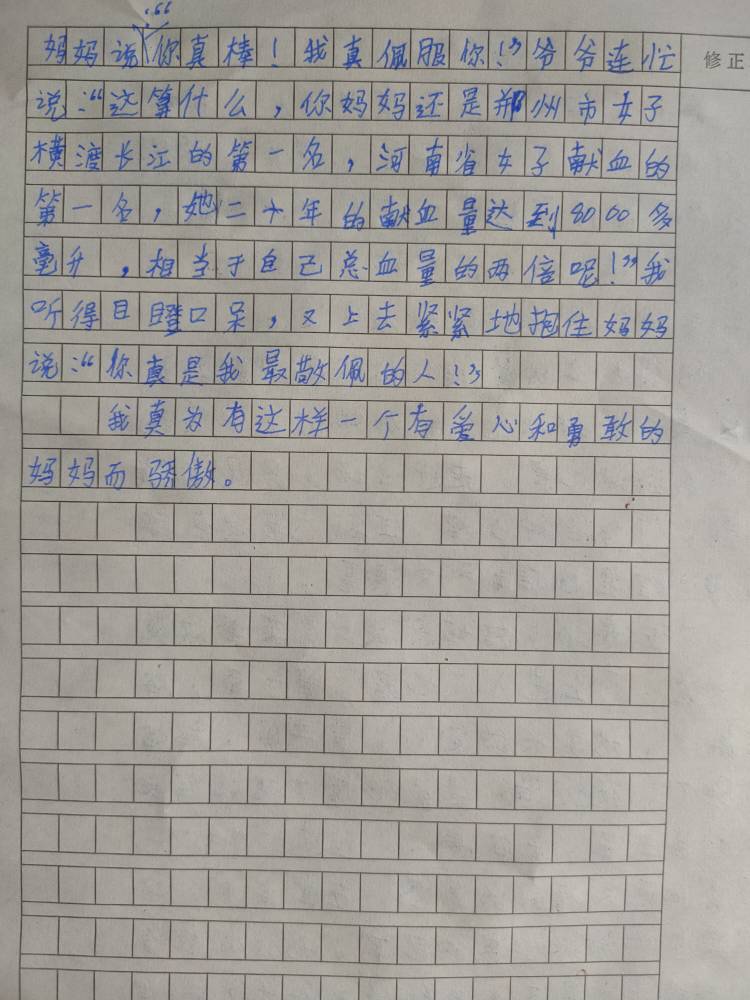 妈妈说：“你真棒！我真佩服你！”爷爷连忙
修正
说：“这算什么，你妈妈还是郑州市女子
横渡长江的第一名，河南省女子献血的
第一名，她二十年的献血量达到8000多
毫升，相当于自己总血量的两倍呢！”我
听得目瞪口呆，又上去紧紧地抱住妈妈
说：“你真是我最敬佩的人！”
我真为有这样一个有爱心和勇敢的
妈妈而骄傲。